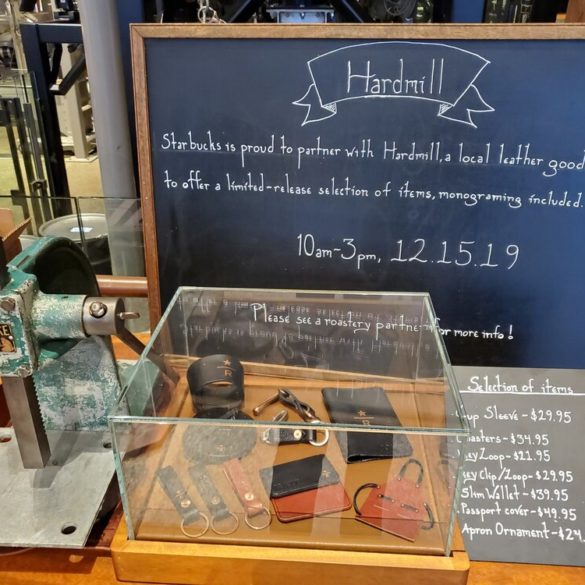 Hardmill
Starbucks is proud to partner with Hardmill, a local leather good
to offer a limited-release selection of items, monograming included.
10am-3pm, 12.15.19
Please see a roastery partner for more info!
Selection of items
Cup Sleeve - $29.95
Coasters - $34.95
Key Loop - $21.95
Key Clip/Loop - $29.95
Slim Wallet - $39.95
Passport cover - $49.95
Apron Ornament - $24.
R